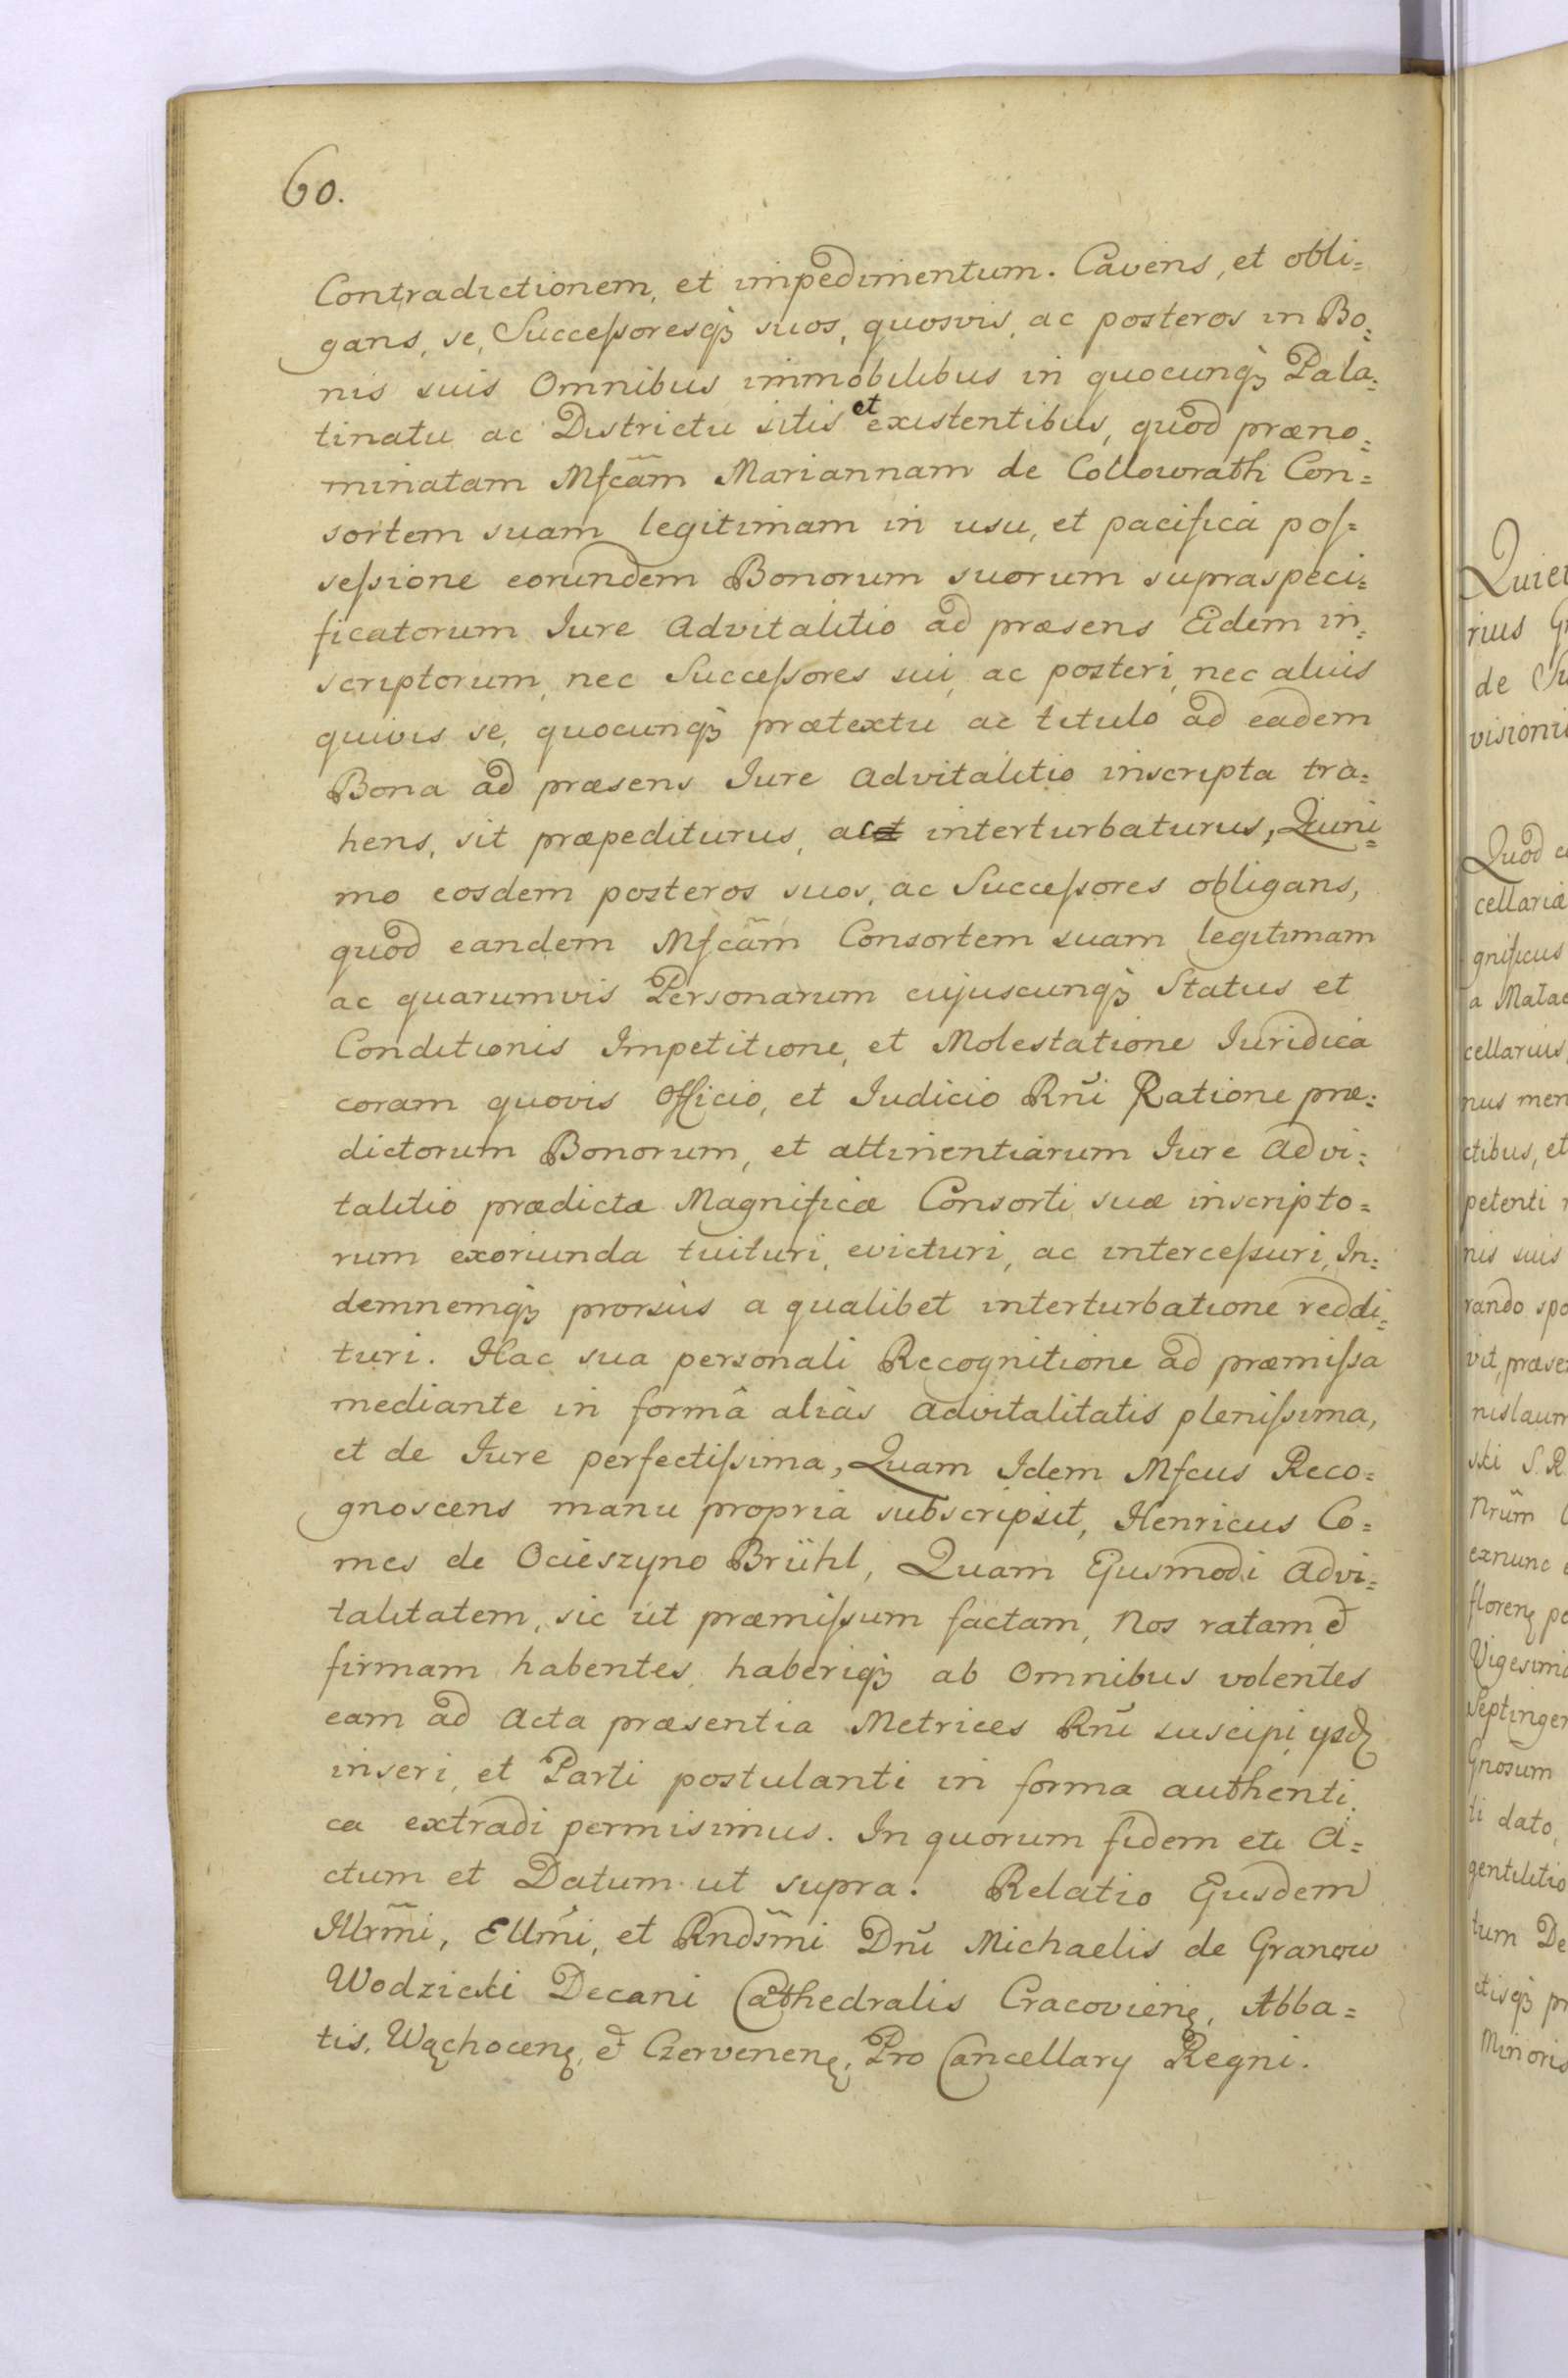 60.
Contradictionem, et impedimentum. Cavens, et obli=
gans, se, Successoresq3 suos, quosvis, ac posteros in Bo=
nis suis Omnibus immobilibus in quocunq3 Pala=
tinatu ac Districtu sitis et existentibus, quod præno=
minatam Mfcam̃ Mariannam de Collowrath Con=
sortem suam legitimam in usu, et pacifica pos=
sessione eorundem Bonorum suorum supraspeci=
ficatorum Iure Advitalitio ad præsens Eidem in=
scriptorum, nec Successores sui, ac posteri, nec aluis
quivis se, quocunq3 prætextu ac titulo ad eadem
Bona ad præsens Iure Advitalitio inscripta tra=
hens, sit præpediturus, ac interturbaturus, Quini=
mo eosdem posteros suos, ac Successores obligans,
quod eandem Mfcam̃ Consortem suam legitimam
ac quarumvis Personarum cujuscunq3 Status et
Conditionis Impetitione, et Molestatione Iuridica
coram quovis Officio, et Iudicio Rnĩ Ratione præ=
dictorum Bonorum, et attinentiarum Iure Advi=
talitio prædictæ Magnificæ Consorti suæ inscripto=
rum exoriunda tuituri, evicturi, ac intercessuri, In=
demnemq3 prorsùs a qualibet interturbatione reddi=
turi. Hac sua personali Recognitione ad præmissa
mediante in formâ aliàs Advitalitatis plenissima,
et de Iure perfectissima, Quam Idem Mfcus Reco=
gnoscens manu propria subscripsit, Henricus Co=
mes de Ocieszyno Brühl, Quam Ejusmodi Advi=
talitatem, sic ut præmissum factam, Nos ratam et
firmam habentes, haberiq3 ab Omnibus volentes
eam ad Acta præsentia Metrices Rnĩ suscipi, ysdꝫ
inseri, et Parti postulanti in forma authenti=
ca extradi permisimus. In quorum fidem etc A=
ctum et Datum ut supra. Relatio Ejusdem
Illrm̃i, Ellm̃i, et Rndsm̃i Dnĩ Michaelis de Granow
Wodzicki Decani Cathedralis Cracovienꝫ, Abba=
tis, Wąchocenꝫ, et Czervenenꝫ, Pro Cancellary Regni.
Quiet
rius
de
visioni
Quod
cellariæ
gnificus
a Malac
cellarius,
nus men
ctibus, et
petenti
nis suis
rando spo
vit, præse
nislaum
ski S. R.
Nrum̃
exnunc
florenꝫ po
Vigesima
Septingen
Gnosum
ti dato,
gentilitio
tum De
ctisq3 pr
Minoris